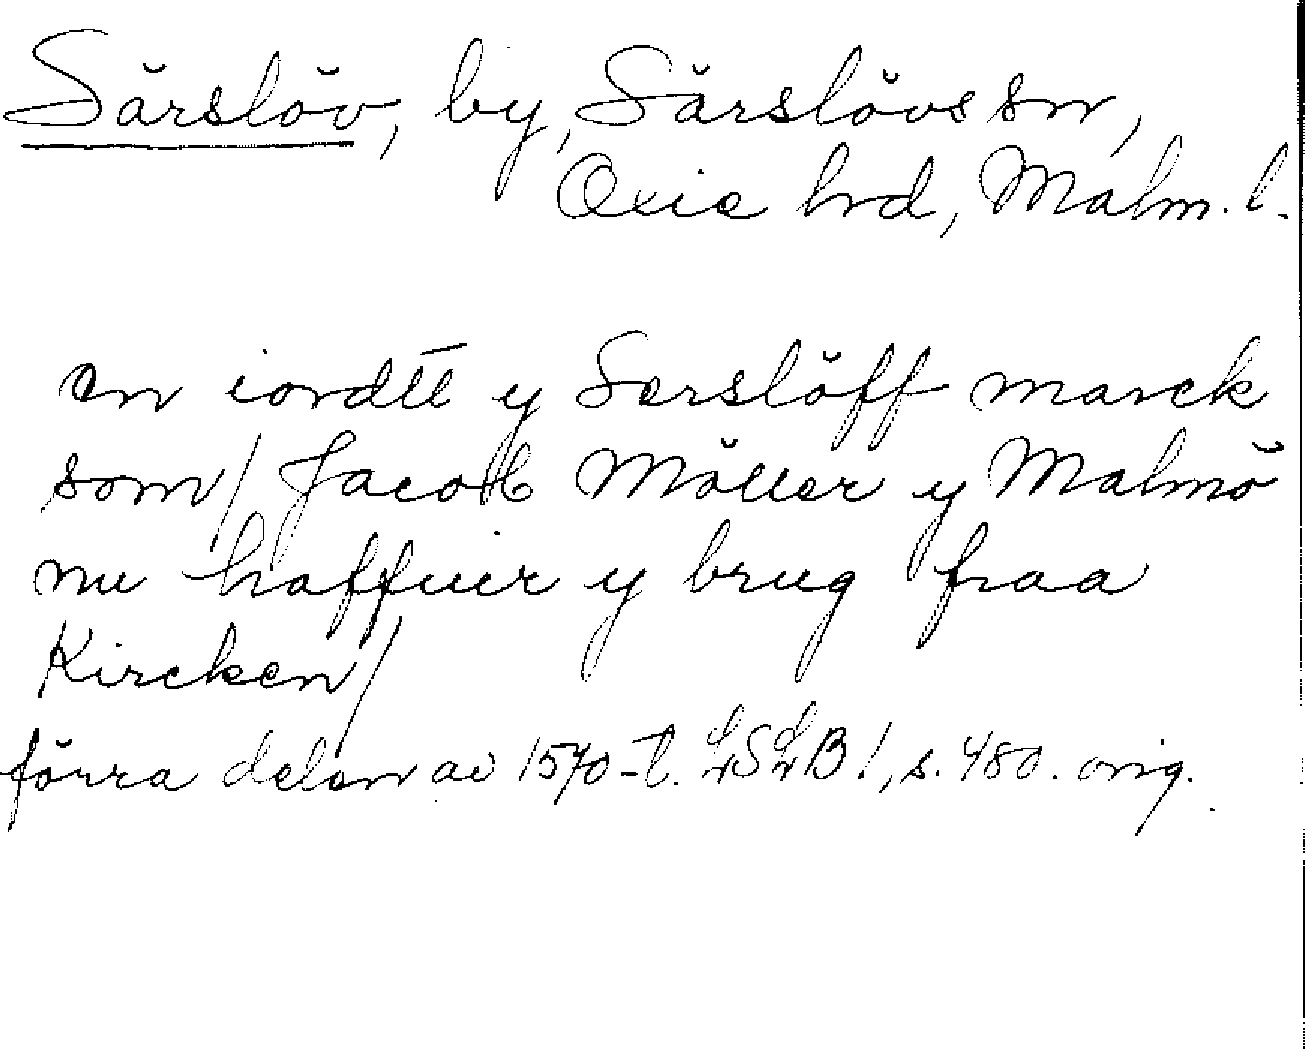 Särslöv, by, Särslövs sn,
Oxie hrd, Malm. l.
en iordtt̄ y Serslöff marck
som/ Jacob Möller y Malmö
nu haffuer y brug fraa
Kircken/
förra delen av 1570-t. LSLB1, s. 480. orig.